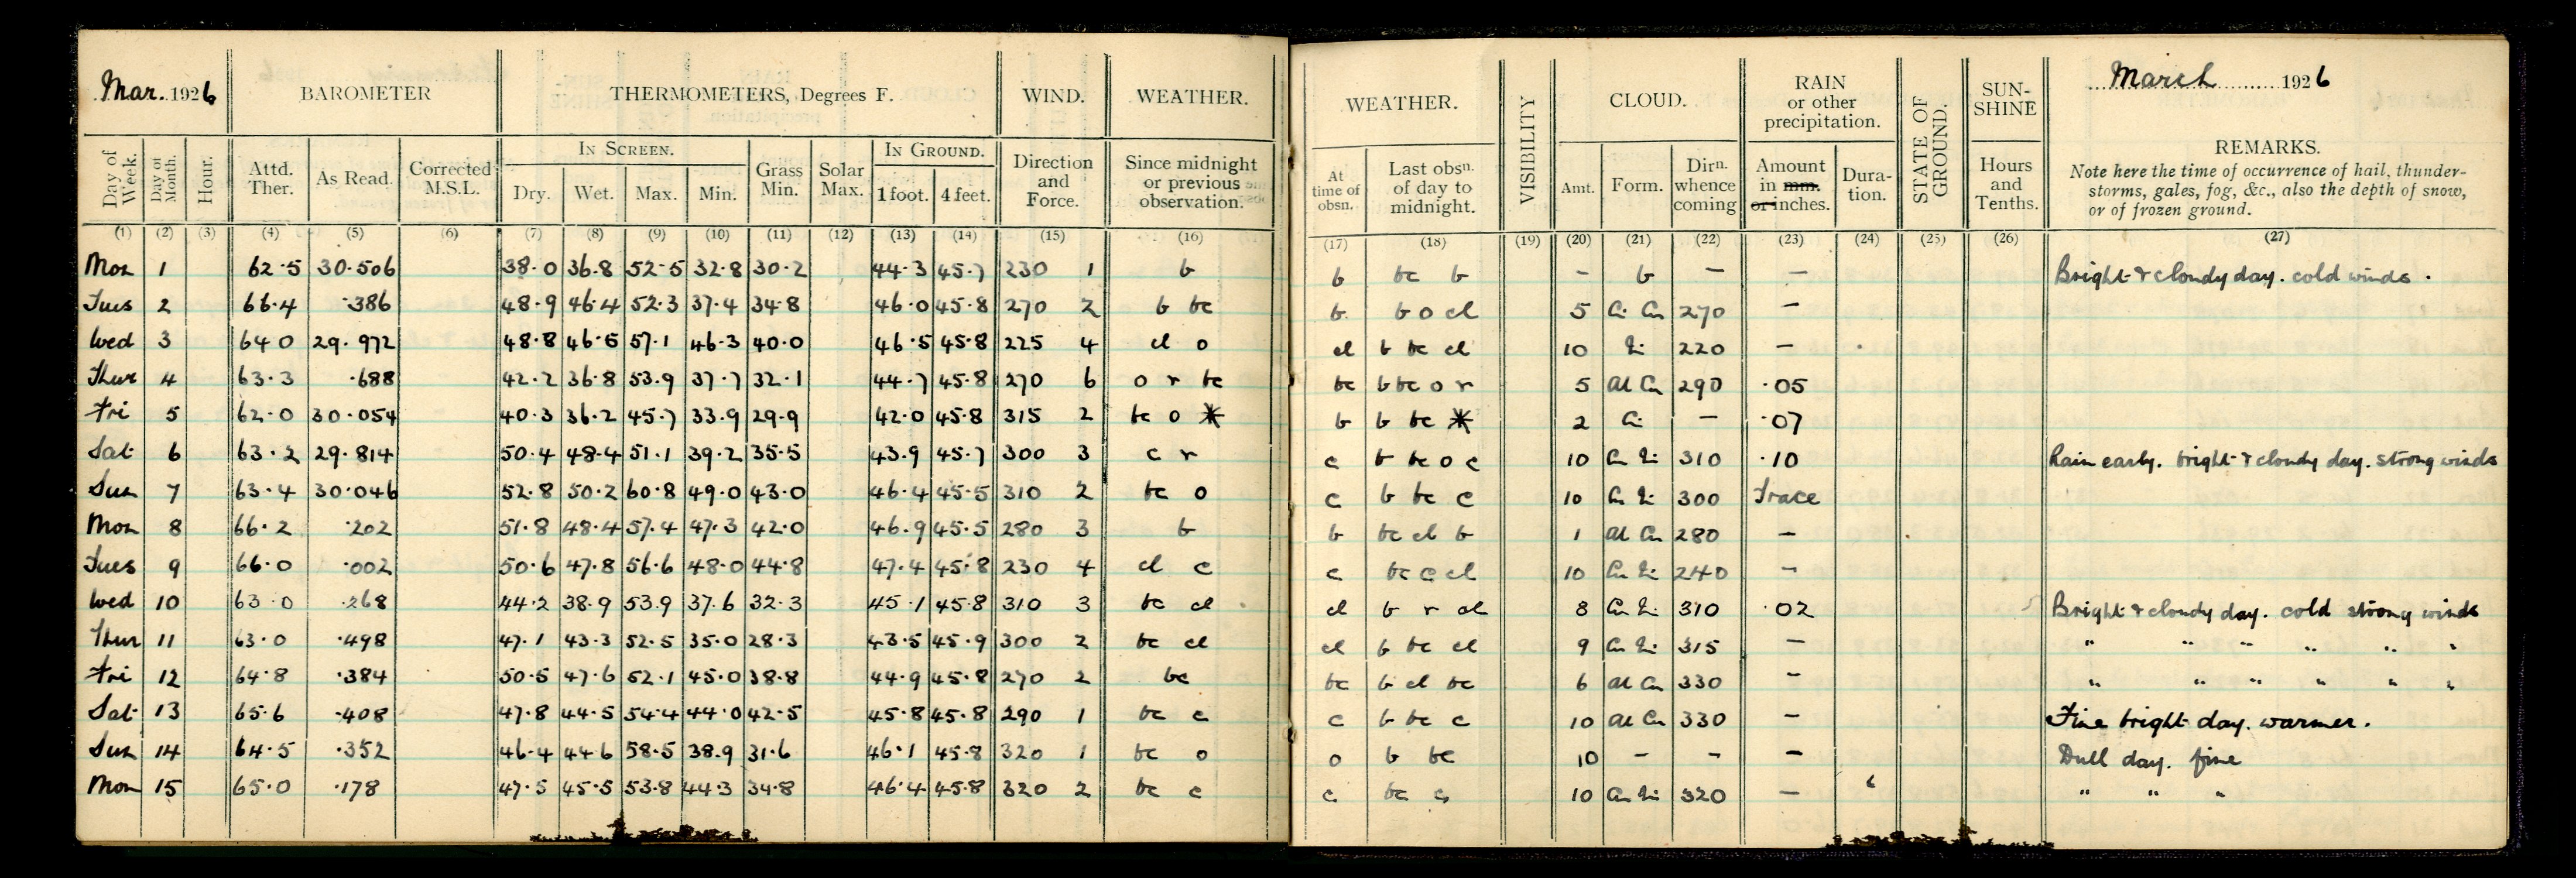 Mar. 1926 BAROMETER THERMOMETERS, Degrees F. WIND. WEATHER.
Day of Week. Day of Month. Hour. Attd. Ther. As Read. Corrected M.S.L. IN SCREEN. Dry. Wet. Max. Min. Grass Min. Solar Max. IN GROUND. 1 foot. 4 feet. Direction and Force. Since midnight or previous observation.
(1) (2) (3) (4) (5) (6) (7) (8) (9) (10) (11) (12) (13) (14) (15) (16)
Mon 1 62.5 30.506 38.0 36.8 52.5 32.8 30.2 44.3 45.7 230 1 b
Tues 2 66.4 .386 48.9 46.4 52.3 37.4 34.8 46.0 45.8 270 2 b bc
Wed 3 64 0 29.972 48.8 46.5 57.1 46.3 40.0 46.5 45.8 225 4 cl o
Thur 4 63.3 .688 42.2 36.8 53.9 37.7 32.1 44.7 45.8 270 6 o r bc
Fri 5 62.0 30.054 40.3 36.2 45.7 33.9 29.9 42.0 45.8 315 2 bc o *
Sat 6 63.2 29.814 50.4 48.4 51.1 39.2 35.5 43.9 45.7 300 3 c r
Sun 7 63.4 30.046 52.8 50.2 60.8 49.0 43.0 46.4 45.5 310 2 bc o
Mon 8 66.2 .202 51.8 48.4 57.4 47.3 42.0 46.9 45.5 280 3 b
Tues 9 66.0 .002 50.6 47.8 56.6 48.0 44.8 47.4 45.8 230 4 cl c
Wed 10 63.0 .268 44.2 38.9 53.9 37.6 32.3 45.1 45.8 310 3 bc cl
Thur 11 63.0 .498 47.1 43.3 52.5 35.0 28.3 43.5 45.9 300 2 bc cl
Fri 12 64.8 .384 50.5 47.6 52.1 45.0 38.8 44.9 45.8 270 2 bc
Sat 13 65.6 .408 47.8 44.5 54.4 44.0 42.5 45.8 45.8 290 1 bc c
Sun 14 64.5 .352 46.4 44 6 58.5 38.9 31.6 46.1 45.8 320 1 bc o
Mon 15 65.0 .178 47.5 45.5 53.8 44.3 34.8 46.4 45.8 320 2 bc c
WEATHER. VISIBILITY CLOUD. RAIN or other precipitation. STATE OF GROUND. SUN-SHINE March 1926
At time of obsn. Last obsn. of day to midnight. Amt. Form. Dirn. whence coming Amount in mm. or inches. Duration. Hours and Tenths. REMARKS.
Note here the time of occurrence of hail, thunder-
storms, gales, fog, &c., also the depth of snow,
or of frozen ground.
(17) (18) (19) (20) (21) (22) (23) (24) (25) (26) (27)
b bc b – b – – Bright & cloudy day. cold winds.
b b o cl 5 Ci Cu 270 –
cl b bc cl 10 220 –
bc b bc o r 5 Al Cu 290 .05
b b bc * 2 Ci – .07
c b bc o c 10 Cu 310 .10 Rain early. bright & cloudy day. strong winds
c b bc c 10 Cu 300 Trace
b bc cl b 1 Al Cu 280 –
c bc c cl 10 Cu 240 –
cl b r cl 8 Cu 310 .02 Bright & cloudy day. cold strong winds
cl b bc cl 9 Cu 315 – " " " " " "
bc b cl bc 6 Al Cu 330 – " " " " " "
c b bc c 10 Al Cu 330 – Fine bright day. warmer.
o b bc 10 – – – Dull day. fine
c bc c 10 Cu 320 – " " "